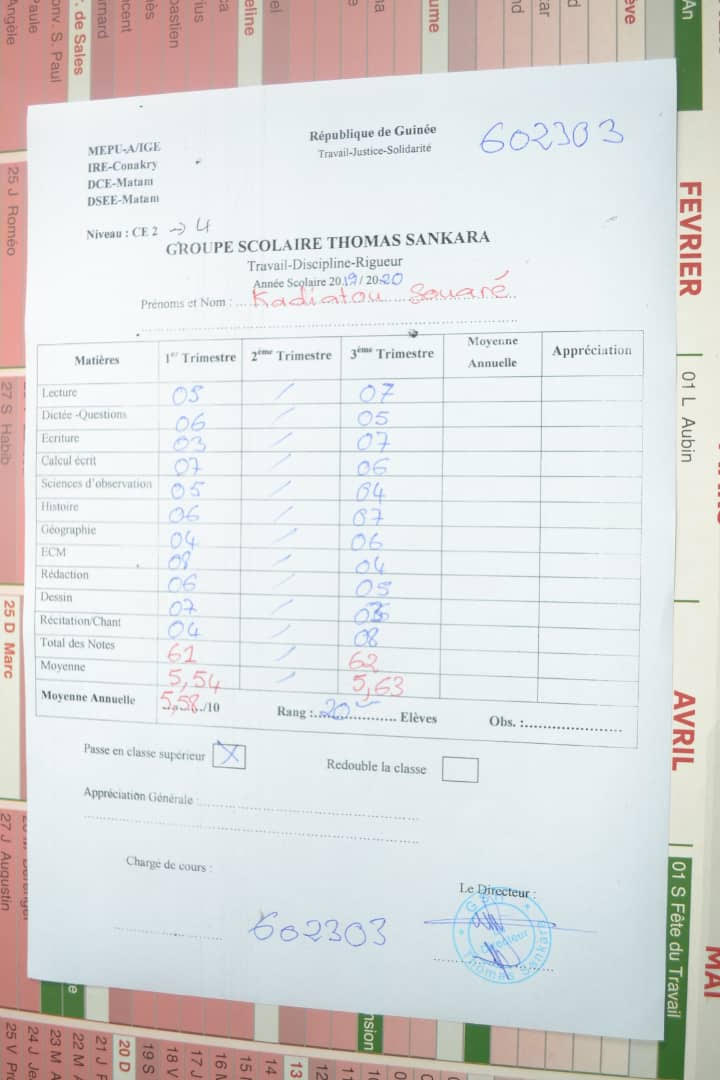 MEPU-A/IGE
IRE-Conakry
DCE-Matam
DSEE-Matam
République de Guinée
Travail-Justice-Solidarité
602303
Niveau : CE 2 → 4
GROUPE SCOLAIRE THOMAS SANKARA
Travail-Discipline-Rigueur
Année Scolaire 2019/ 2020
Prénoms et Nom : Kadiatou Souaré
Matières 1er Trimestre 2ème Trimestre 3ème Trimestre Moyenne Annuelle Appréciation
Lecture 05 / 07
Dictée -Questions 06 / 05
Ecriture 03 / 07
Calcul écrit 07 / 06
Sciences d'observation 05 / 04
Histoire 06 / 07
Géographie 04 / 06
ECM 08 / 04
Rédaction 06 / 05
Dessin 07 /
Récitation/Chant 04 / 08
Total des Notes 61 / 62
Moyenne 5,54 / 5,63
Moyenne Annuelle 5,58/10 Rang : 20 Elèves Obs. :
Passe en classe supérieur X Redouble la classe
Appréciation Générale :
Chargé de cours :
Le Directeur :
602303
Directeur
Thomas Sankara
FEVRIER
01 L Aubin
AVRIL
01 S Fête du Travail
MAI
25 J Roméo
27 S Habib
25 D Marc
27 J Augustin